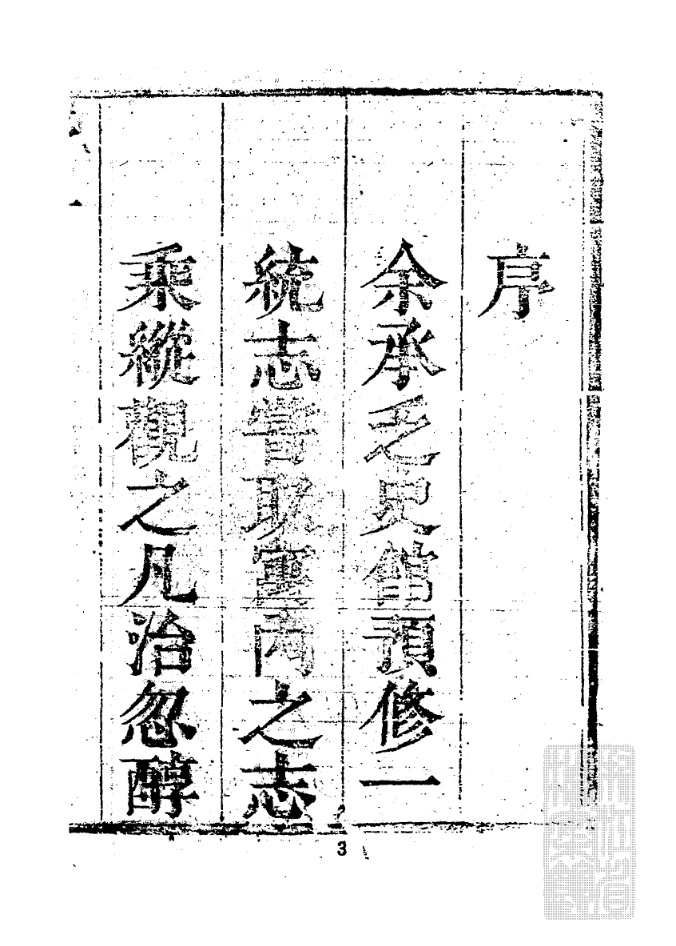 序
余承乏史館預修一
統志嘗取寰内之志
乘縱觀之凡治忽醇
3